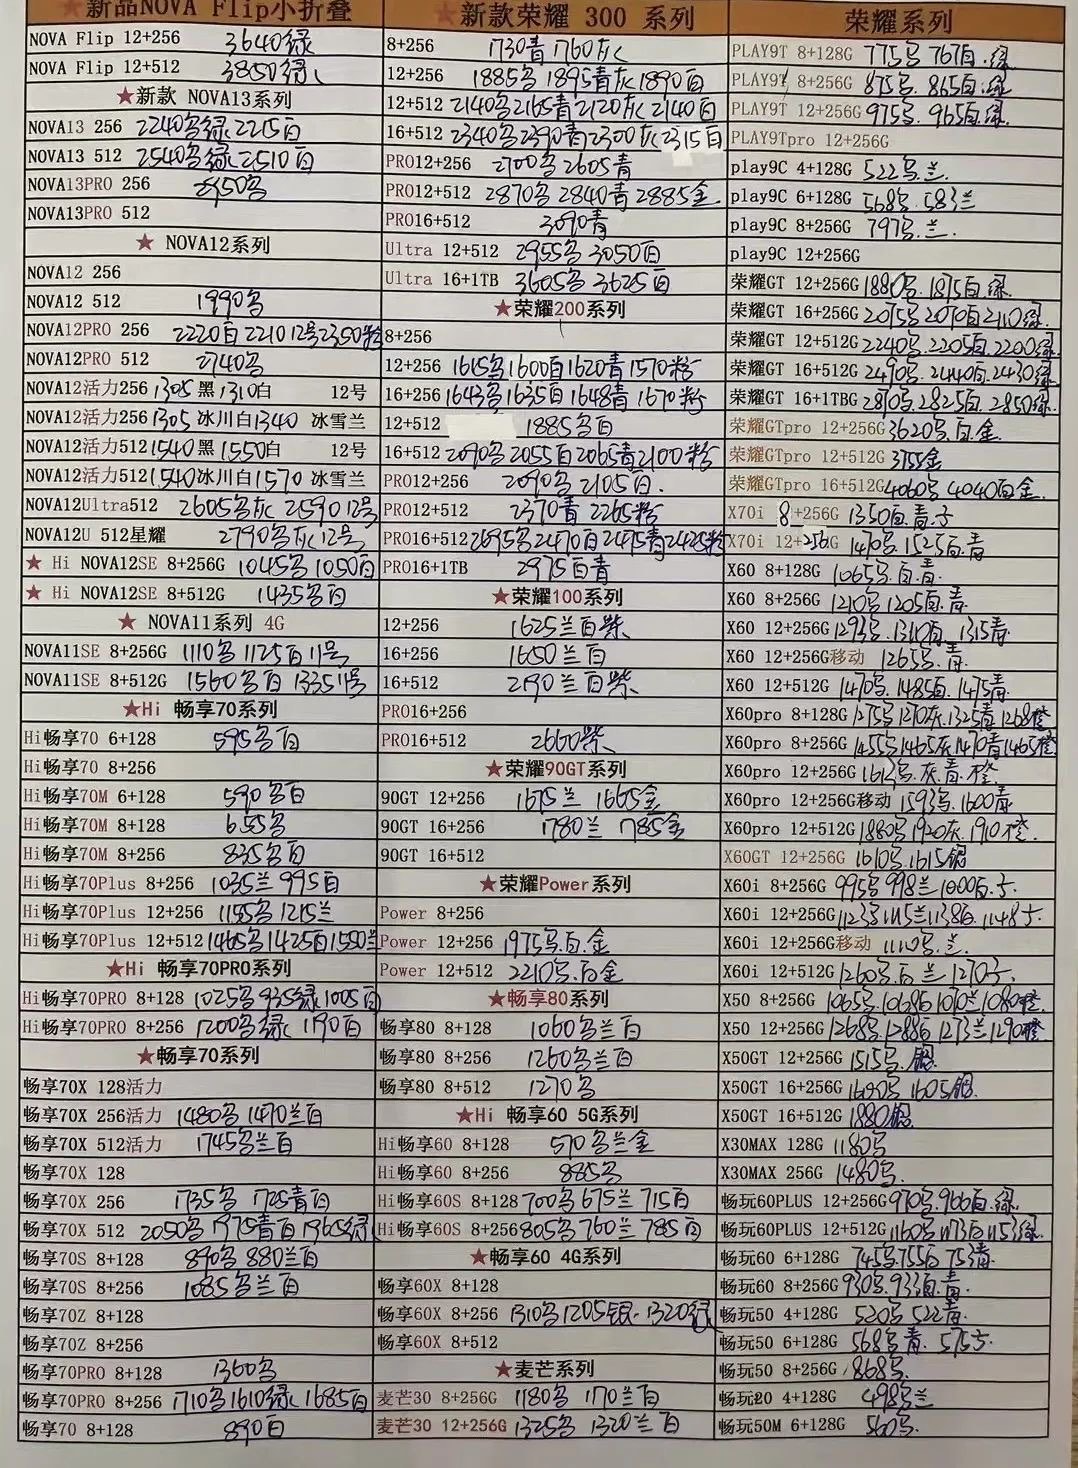 ★新品NOVA Flip小折叠
NOVA Flip 12+256 3640绿
NOVA Flip 12+512 3850绿
★新款 NOVA13系列
NOVA13 256 2240名绿 2215百
NOVA13 512 2540名绿 2510百
NOVA13PRO 256
NOVA13PRO 512
★ NOVA12系列
NOVA12 256
NOVA12 512 1990名
NOVA12PRO 256 2220百 2210 12号 2350粉
NOVA12PRO 512 2740名
NOVA12活力256 1305 黑 1310白 12号
NOVA12活力256 1305 冰川白 1340 冰雪兰
NOVA12活力512 1540 黑 1550白 12号
NOVA12活力512 1540 冰川白 1570 冰雪兰
NOVA12Ultra512 2605名灰 2590 12号
NOVA12U 512星耀 2790名灰 12号
★ Hi NOVA12SE 8+256G 1045名 1050百
★ Hi NOVA12SE 8+512G 1435名百
★ NOVA11系列 4G
NOVA11SE 8+256G 1110名 1125百 11号
NOVA11SE 8+512G 1560名百 1335 11号
★Hi 畅享70系列
Hi畅享70 6+128 595名百
Hi畅享70 8+256
Hi畅享70M 6+128 590名百
Hi畅享70M 8+128 655名
Hi畅享70M 8+256 835名百
Hi畅享70Plus 8+256 1035兰 995百
Hi畅享70Plus 12+256 1155名 1215兰
Hi畅享70Plus 12+512 1465名 1425百 1550兰
★Hi 畅享70PRO系列
Hi畅享70PRO 8+128 1025名 935绿 1005百
Hi畅享70PRO 8+256 1200名绿 1190百
★畅享70系列
畅享70X 128活力
畅享70X 256活力 1480名 1470兰百
畅享70X 512活力 1745名兰百
畅享70X 128
畅享70X 256 1735名 1725青百
畅享70X 512 2050名 1975青百 1965绿
畅享70S 8+128 890名 880兰百
畅享70S 8+256 1085名兰百
畅享70Z 8+128
畅享70Z 8+256
畅享70PRO 8+128 1360名
畅享70PRO 8+256 1710名 1610绿 1685百
畅享70 8+128 890百
★新款荣耀 300 系列
8+256 1730青 1760灰
12+256 1885名 1895青灰 1890百
12+512 2140名 2165青 2120灰 2140百
16+512 2340名 2390青 2300灰 2315百
PRO12+256 2700名 2605青
PRO12+512 2870名 2840青 2885金
PRO16+512 3090青
Ultra 12+512 2955名 3050百
Ultra 16+1TB 3605名 3625百
★荣耀200系列
8+256
12+256 1615名 1600百 1620青 1570粉
16+256 1643名 1635百 1648青 1670粉
12+512 1885名百
16+512 2090名 2055百 2065青 2100粉
PRO12+256 2090名 2105百.
PRO12+512 2370青 2265粉
PRO16+512 2695名 2470百 2475青 2425粉
PRO16+1TB 2975百青
★荣耀100系列
12+256 1625兰百紫
16+256 1650兰百
16+512 2190兰百紫
PRO16+256
PRO16+512 2660紫
★荣耀90GT系列
90GT 12+256 1675兰 1665金
90GT 16+256 1780兰 1785金
90GT 16+512
★荣耀Power系列
Power 8+256
Power 12+256 1975名.百.金
Power 12+512 2210名.百金
★畅享80系列
畅享80 8+128 1060名兰百
畅享80 8+256 1260名兰百
畅享80 8+512 1270名
★Hi 畅享60 5G系列
Hi畅享60 8+128 570名兰金
Hi畅享60 8+256 885名
Hi畅享60S 8+128 700名 675兰 715百
Hi畅享60S 8+256 805名 760兰 785百
★畅享60 4G系列
畅享60X 8+128
畅享60X 8+256 1310名 1205银. 1320绿
畅享60X 8+512
★麦芒系列
麦芒30 8+256G 1180名 1170兰百
麦芒30 12+256G 1325名 1320兰百
荣耀系列
PLAY9T 8+128G 775名 767百.绿
PLAY9T 8+256G 875名. 865百.绿
PLAY9T 12+256G 975名. 965百.绿
PLAY9Tpro 12+256G
play9C 4+128G 522名.兰.
play9C 6+128G 568名. 583兰
play9C 8+256G 797名.兰.
play9C 12+256G
荣耀GT 12+256G 1880名. 1875百.绿
荣耀GT 16+256G 2075名 2070百 2110绿
荣耀GT 12+512G 2240名. 2205百. 2200绿
荣耀GT 16+512G 2490名. 2440百. 2430绿
荣耀GT 16+1TBG 2870名. 2825百. 2850绿
荣耀GTpro 12+256G 3620名.百.金
荣耀GTpro 12+512G 3755金
荣耀GTpro 16+512G 4060名 4040百金
X70i 8+256G 1350百.青.子
X70i 12+256G 1470名 1525百.青
X60 8+128G 1065名.百.青.
X60 8+256G 1210名 1205百.青
X60 12+256G 1293名. 1310百. 1315青
X60 12+256G移动 1265名.青.
X60 12+512G 1470名. 1485百. 1475青
X60pro 8+128G 1275名 1270灰. 1325青 1268橙
X60pro 8+256G 1455名 1465灰 1470青 1465橙
X60pro 12+256G 名.灰.青.橙
X60pro 12+256G移动 1593名. 1600青
X60pro 12+512G 1880名 1920灰. 1910橙.
X60GT 12+256G 1610名. 1615银
X60i 8+256G 995名 998兰 1000百.子.
X60i 12+256G
X60i 12+256G移动 1110名.兰.
X60i 12+512G 1260名.百 兰 1270子.
X50 8+256G 1065名. 1068百 1070兰 1080橙
X50 12+256G 1268名. 1288百 1273兰 1290橙
X50GT 12+256G 1515名.银.
X50GT 16+256G 1605银.
X50GT 16+512G 1880银.
X30MAX 128G 1180名
X30MAX 256G 1480名.
畅玩60PLUS 12+256G 970名. 966百.绿
畅玩60PLUS 12+512G 1160名 1173百 1153绿
畅玩60 6+128G 745名 755百 753青.
畅玩60 8+256G 930名. 933百.青.
畅玩50 4+128G 520名 522青.
畅玩50 6+128G 568名 青. 575子.
畅玩50 8+256G 868名.
畅玩20 4+128G 498名兰
畅玩50M 6+128G 560名.